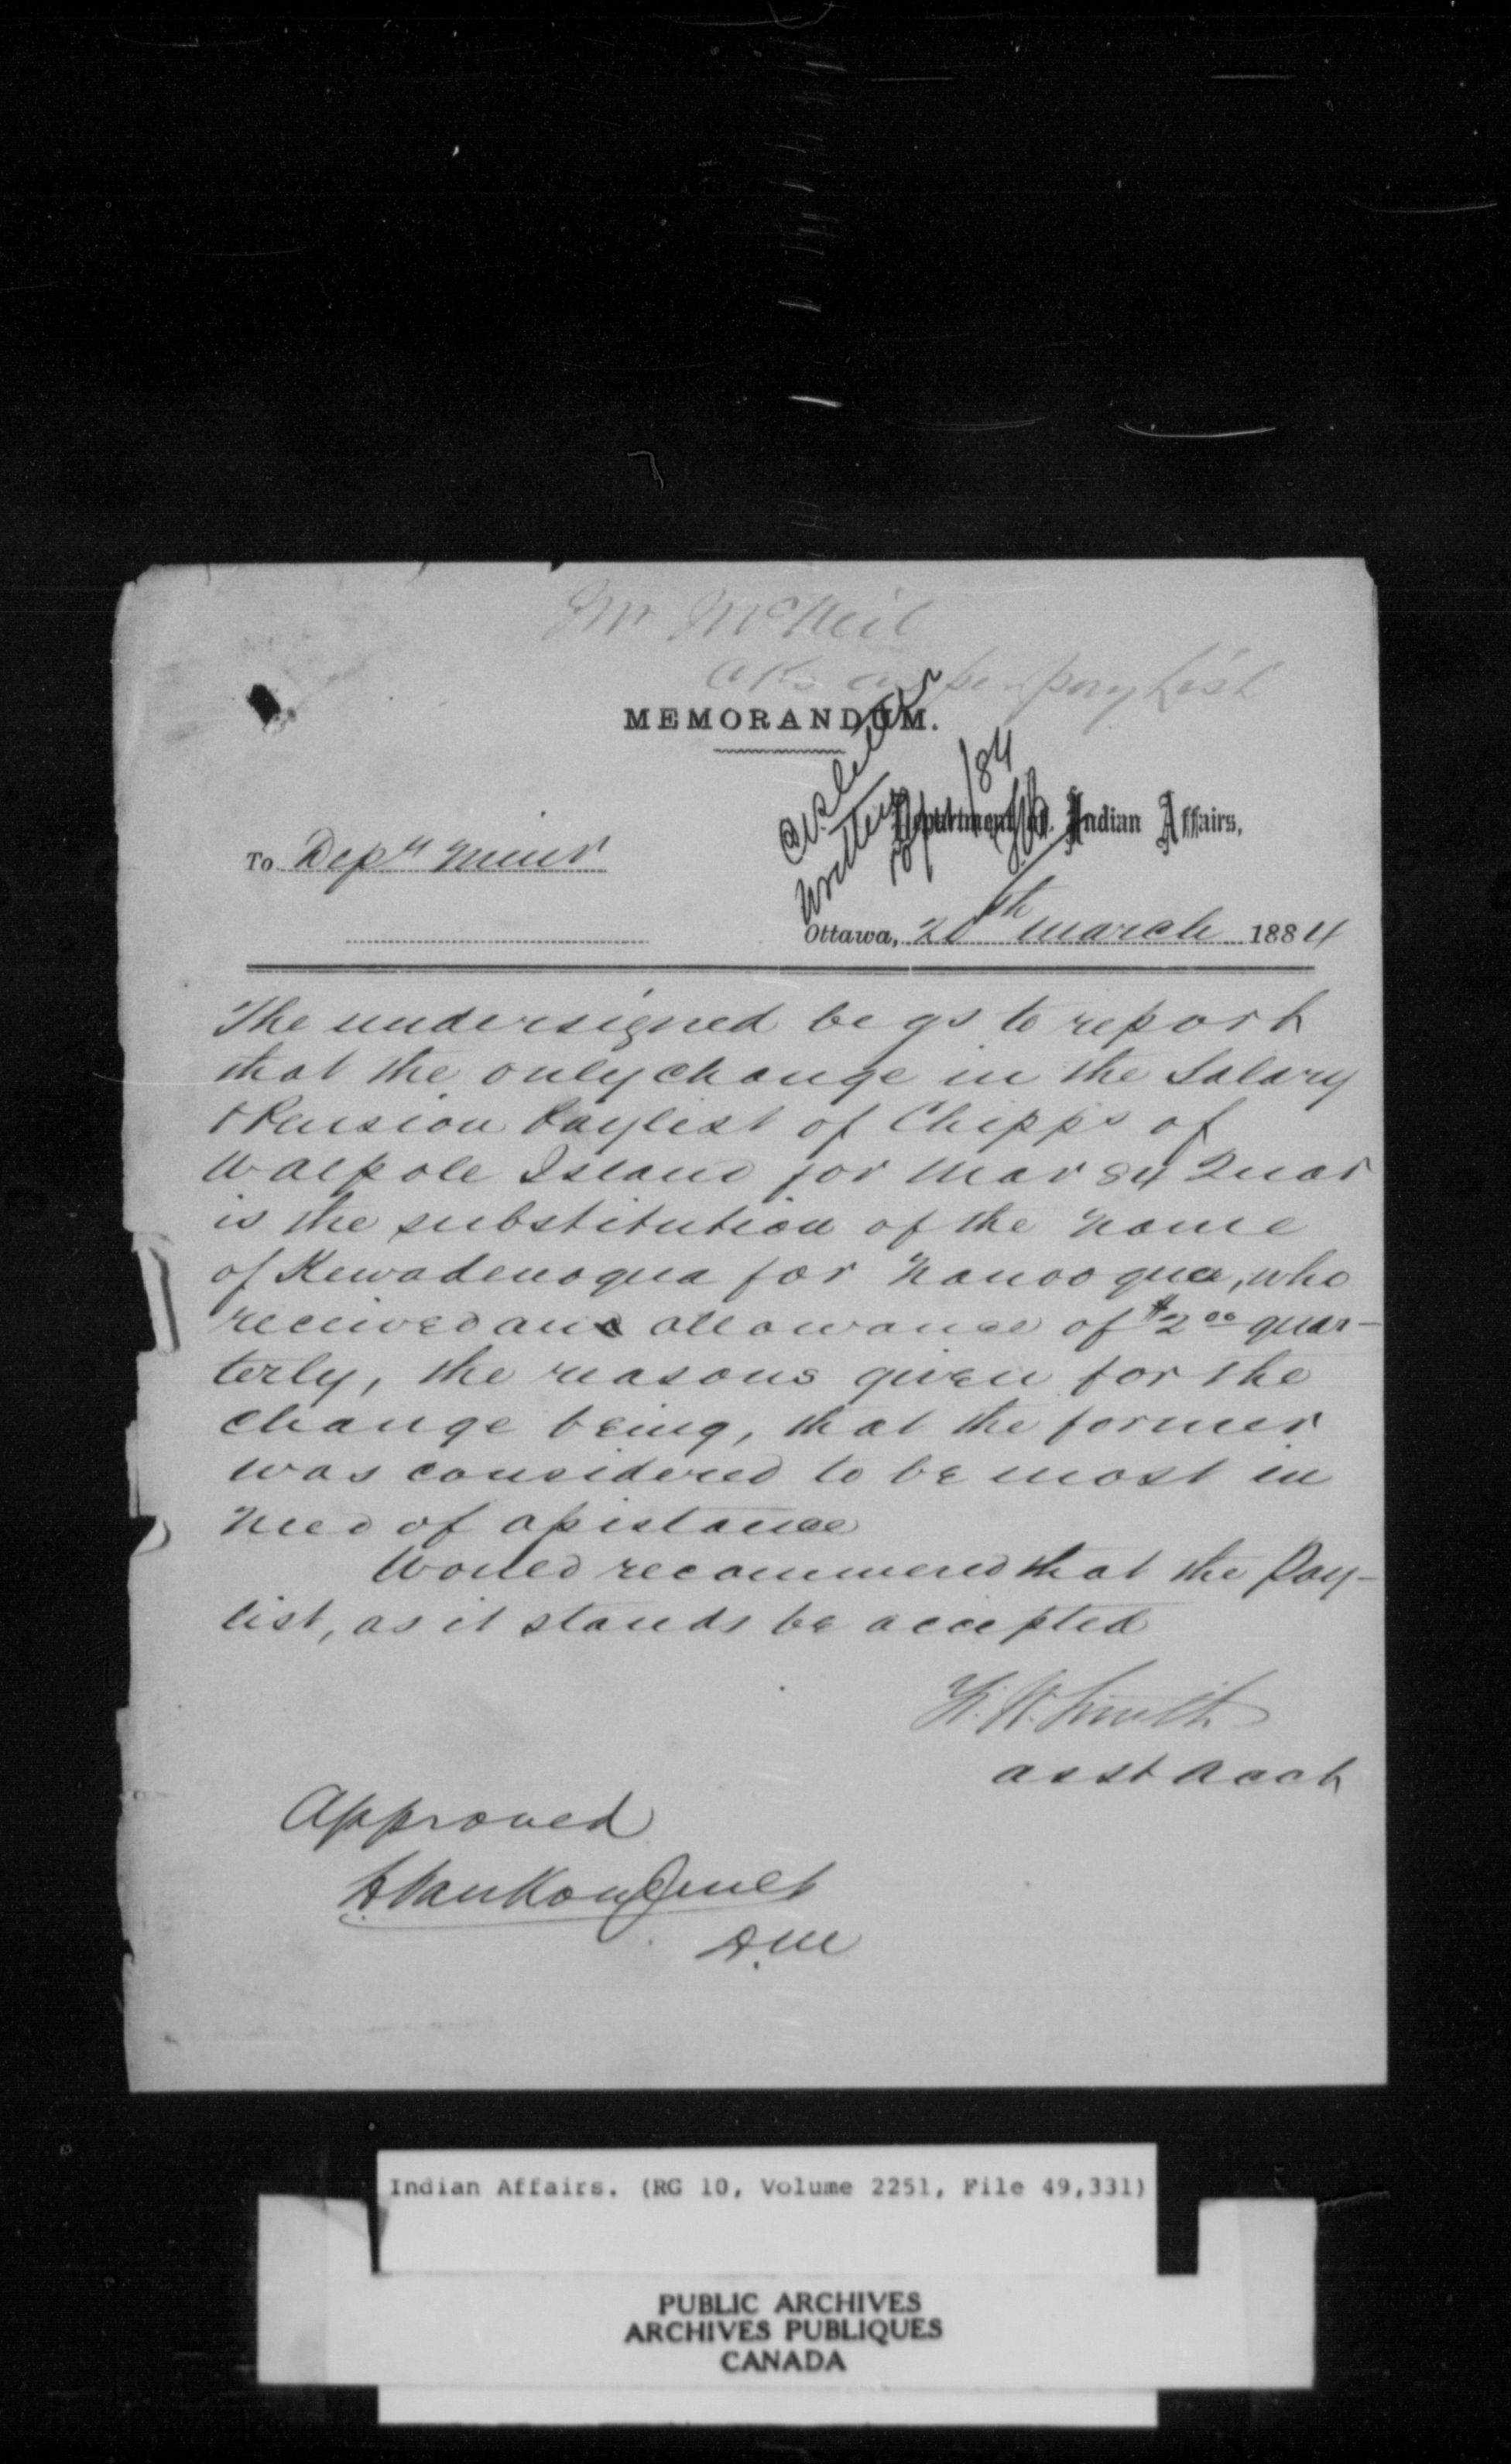 Mr McNeil
pay list
MEMORANDUM.
written
/84
Department of Indian Affairs,
To Depy Minr
Ottawa, 20th March 1884
The undersigned begs to report
that the only change in the Salary
& Pension Paylist of Chipps of
Walpole Island for Mar 84 Quar
is the substitution of the name
of Kewadenoqua for Nanooqua, who
received an allowance of $2 00 quar-
terly, the reasons given for the
change being, that the former
was considered to be most in
need of assistance
Would recommend that the Pay-
list, as it stands be accepted
Smith
Asst Acct
Approved
L VanKoughnet
D.M
Indian Affairs. (RG 10, Volume 2251, File 49,331)
PUBLIC ARCHIVES
ARCHIVES PUBLIQUES
CANADA